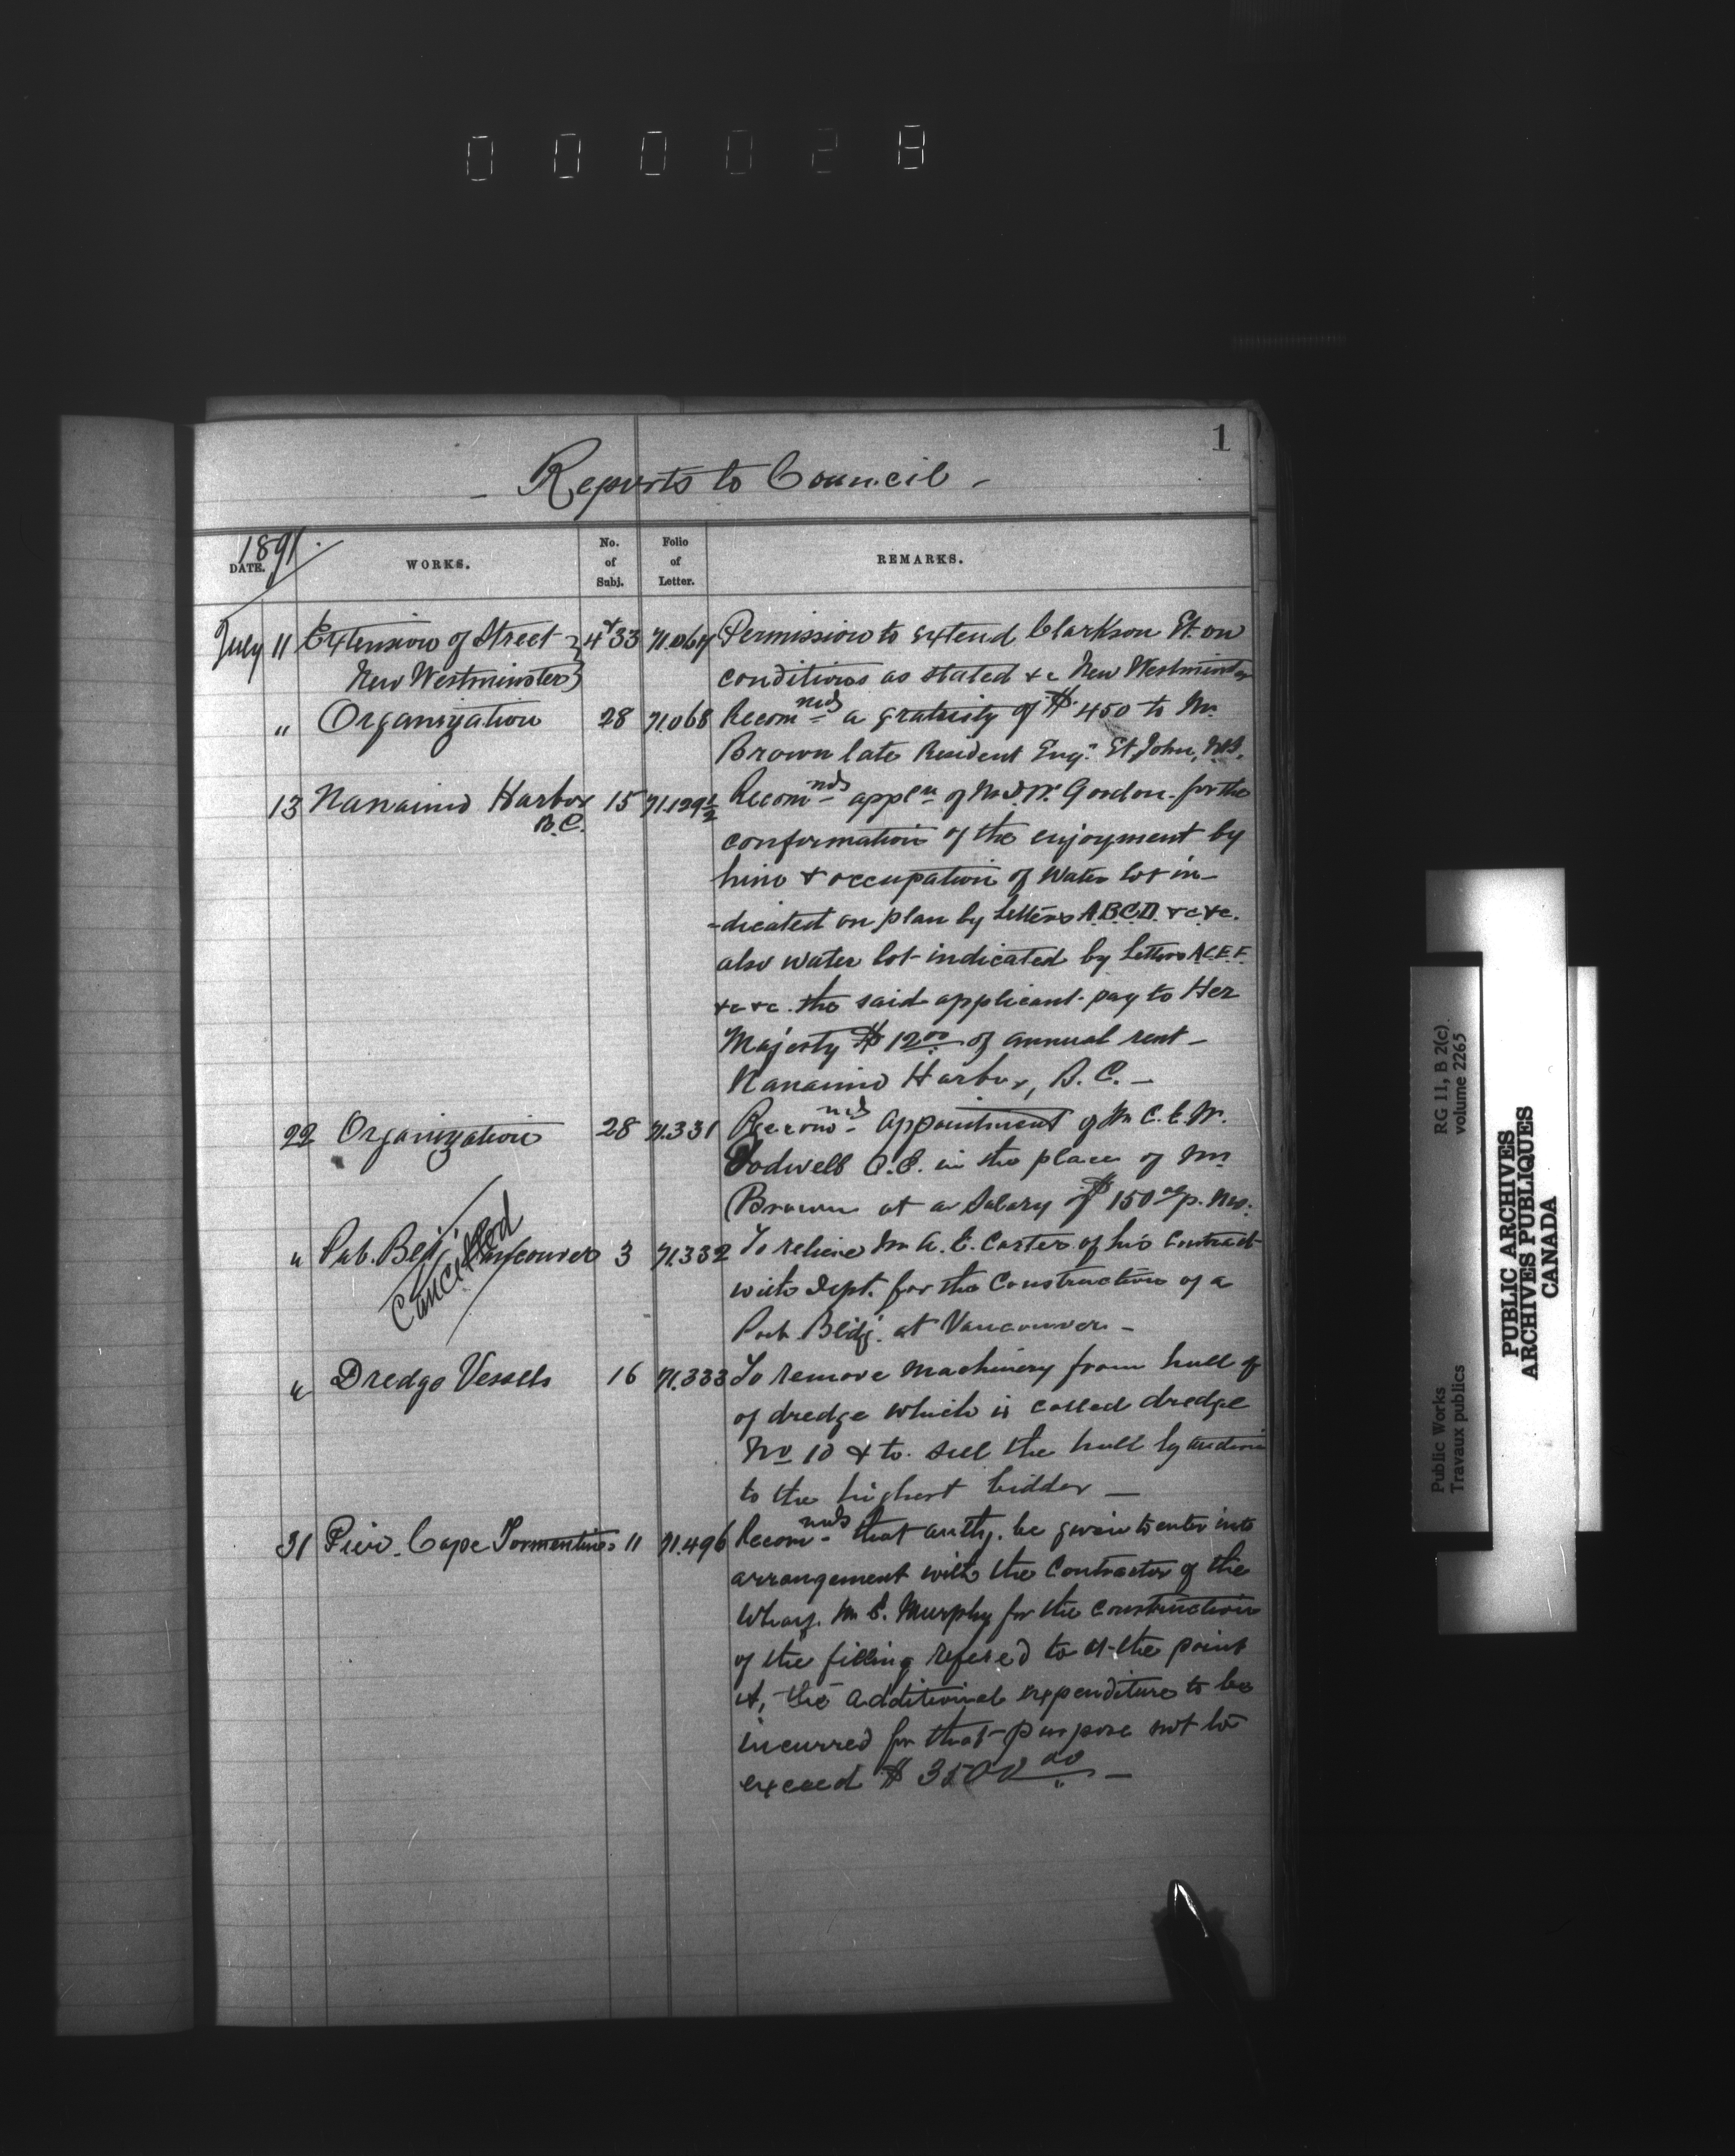 0 0 0 0 2 8
1
- Reports to Council -
1891.
DATE.
WORKS.
No. of Subj.
Folio of Letter.
REMARKS.
July 11 Extension of Street 4+33 71.067 Permission to extend Clarkson St. on
New Westminster conditions as stated &c New Westminster
" Organization 28 71.068 Recommnds a gratuity of $450 to Mr.
Brown late Resident Engr. St. John, N.B.
13 Nanaimo Harbor 15 71.129½ Recomnds appln of Mr D. W. Gordon for the
B.C. confirmation of the enjoyment by
him & occupation of Water lot in-
-dicated on plan by letters A.B.C.D. &c &c.
also water lot indicated by letters A.C.E.F.
&c &c. the said applicant pay to Her
Majesty $12.00 of annual rent -
Nanaimo Harbor, B.C. -
22 Organization 28 71.331 Recomnds appointment of Mr C. E. W.
Dodwell C.E. in the place of Mr
Brown at a Salary of $150.00 p. mo.
" Pub. Bldg. Vancouver 3 71.332 To relieve Mr A. E. Carter of his Contract
Cancelled
with Dept. for the Construction of a
Pub. Bldg. at Vancouver -
" Dredge Vessels 16 71.333 To remove machinery from hull of
of dredge which is called dredge
No 10 & to sell the hull by auction
to the highest bidder -
31 Pier. Cape Tormentine 11 71.496 Recomnds that authy. be given to enter into
arrangement with the Contractor of the
Wharf. Mr E. Murphy for the construction
of the filling refered to at the point
A, the additional expenditure to be
incurred for that purpose not to
exceed $3500.00 -
RG 11, B 2(c).
volume 2265
Public Works
Travaux publics
PUBLIC ARCHIVES
ARCHIVES PUBLIQUES
CANADA